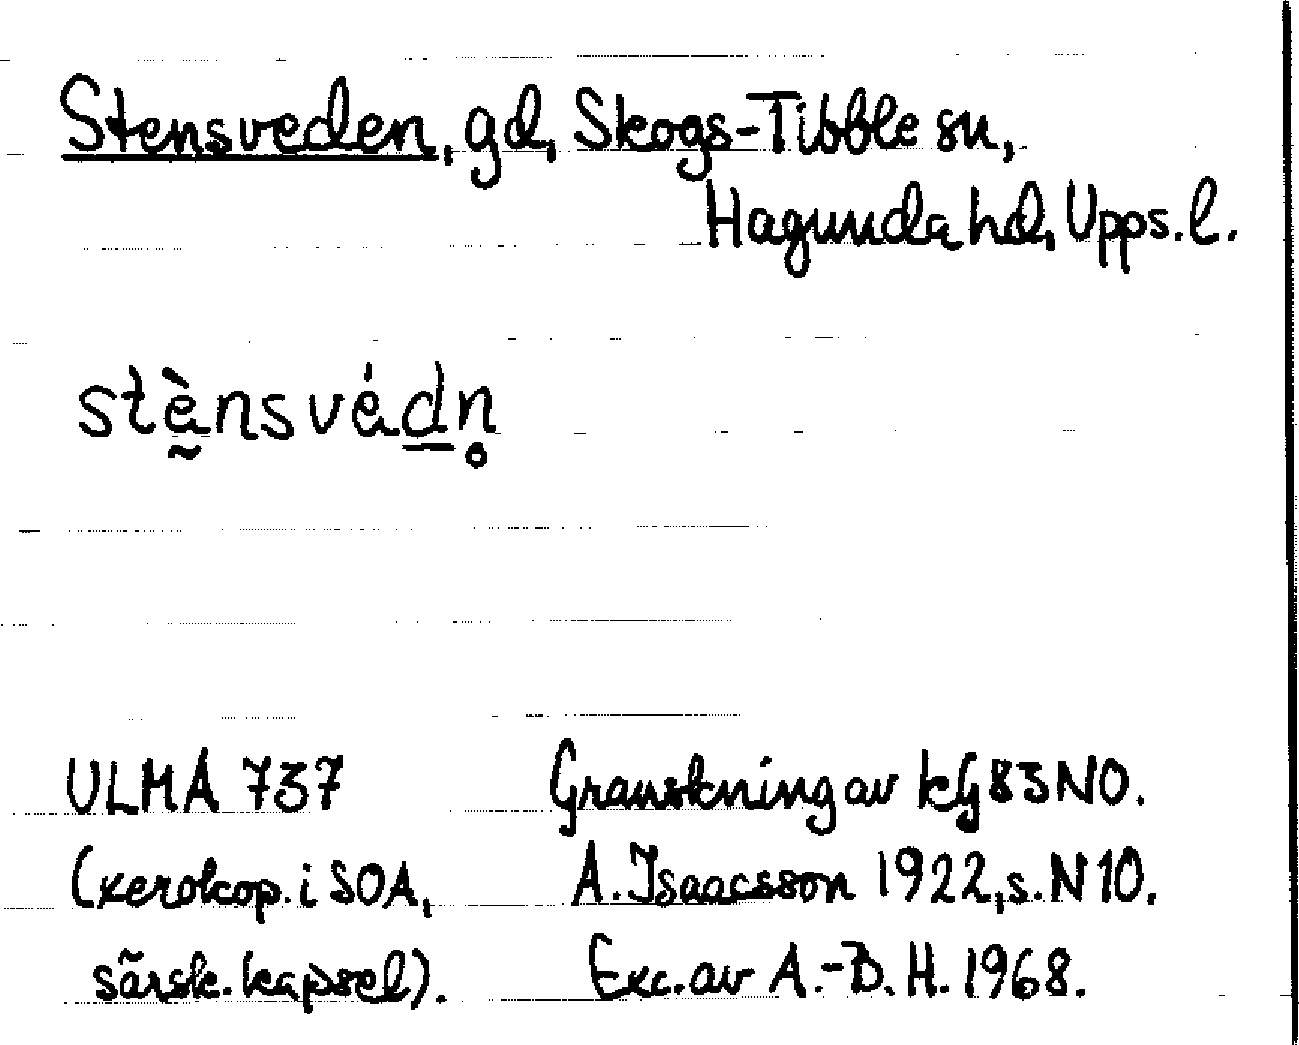 Stensveden, gd, Skogs-Tibble sn,
Hagunda hd, Upps. l.
stḛ̀nsvéd̲n̥
ULMA 737
(xerokop. i SOA,
särsk. kapsel).
Granskning av kG 83 NO.
A. Isaacsson 1922, s. N 10.
Exc. av A.-B. H. 1968.